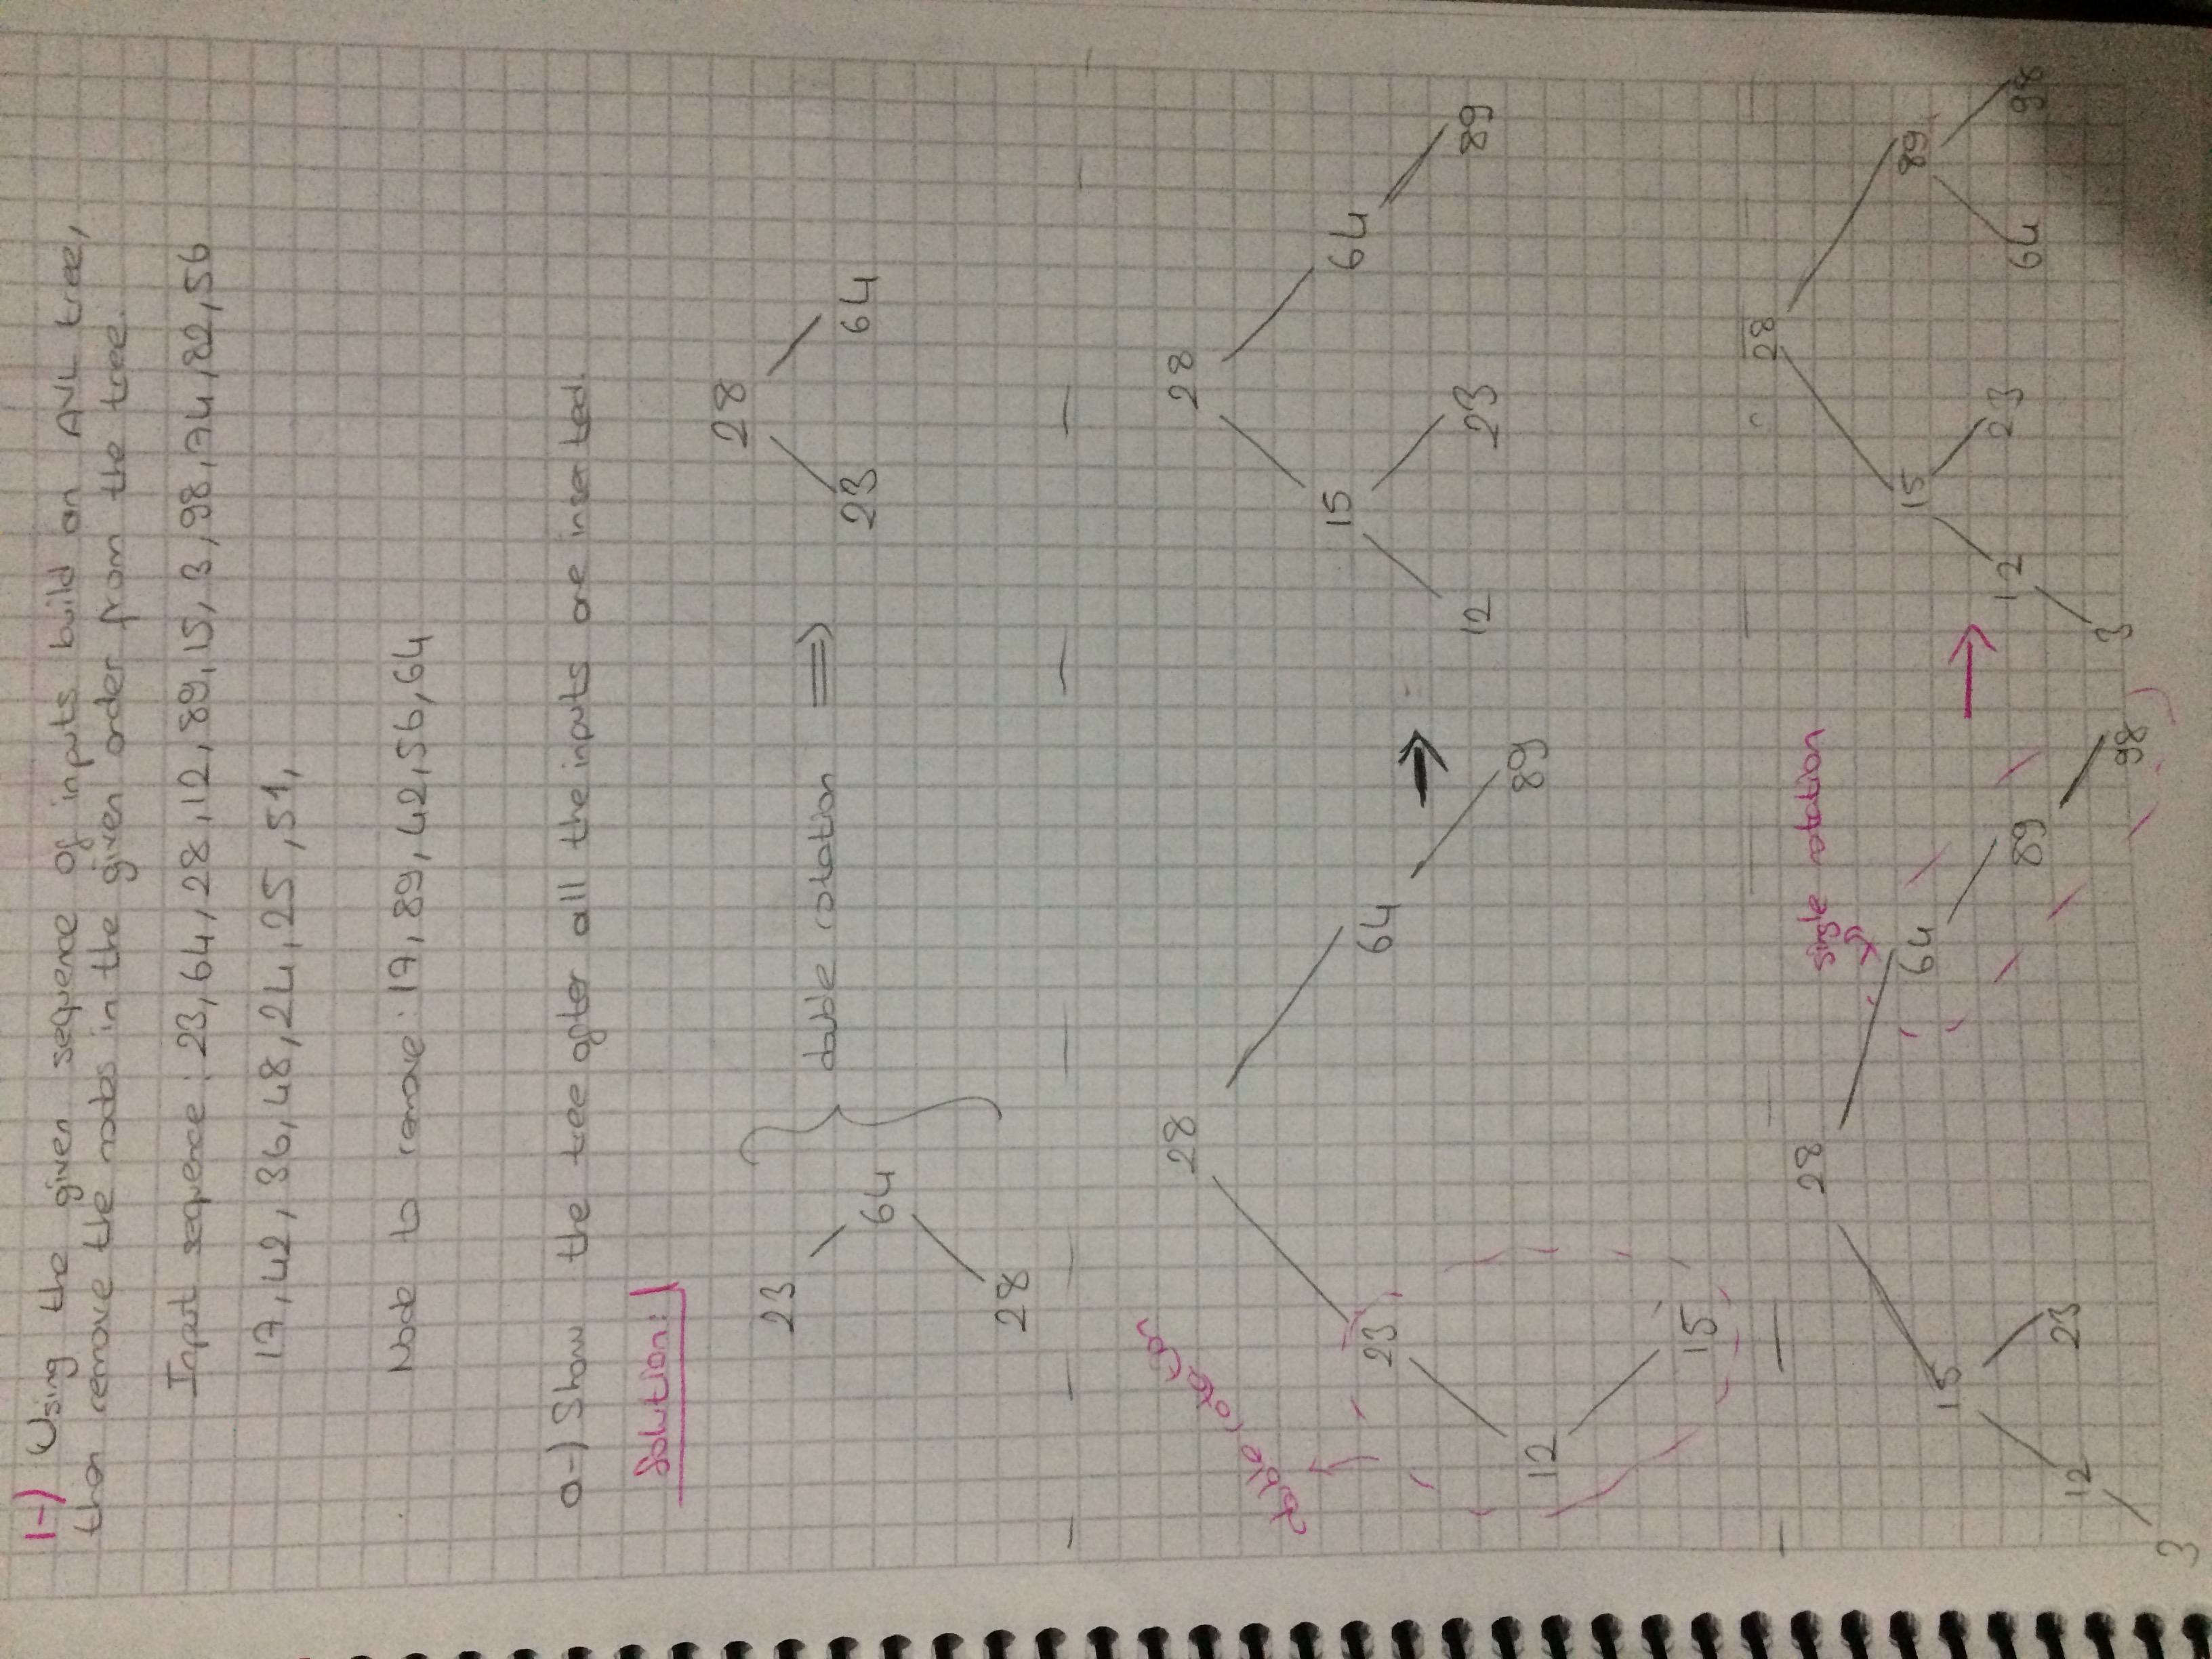 1-) Using the given sequence of inputs build an AVL tree,
then remove the nodes in the given order from the tree.
Input sequence : 23, 64, 28, 12, 89, 15, 3, 98, 74, 82, 56
17, 42, 36, 48, 24, 25, 51,
Node to remove : 17, 89, 42, 56, 64
a-) Show the tree after all the inputs are inserted.
Solution:
28
23
double rotation
23 64
64
28
double rotation
28 28
15 64
23 64
12 23 89
12 89
15
28
28 single rotation
64 15 89
15
12 23 64 98
89
12 23
98 3
3